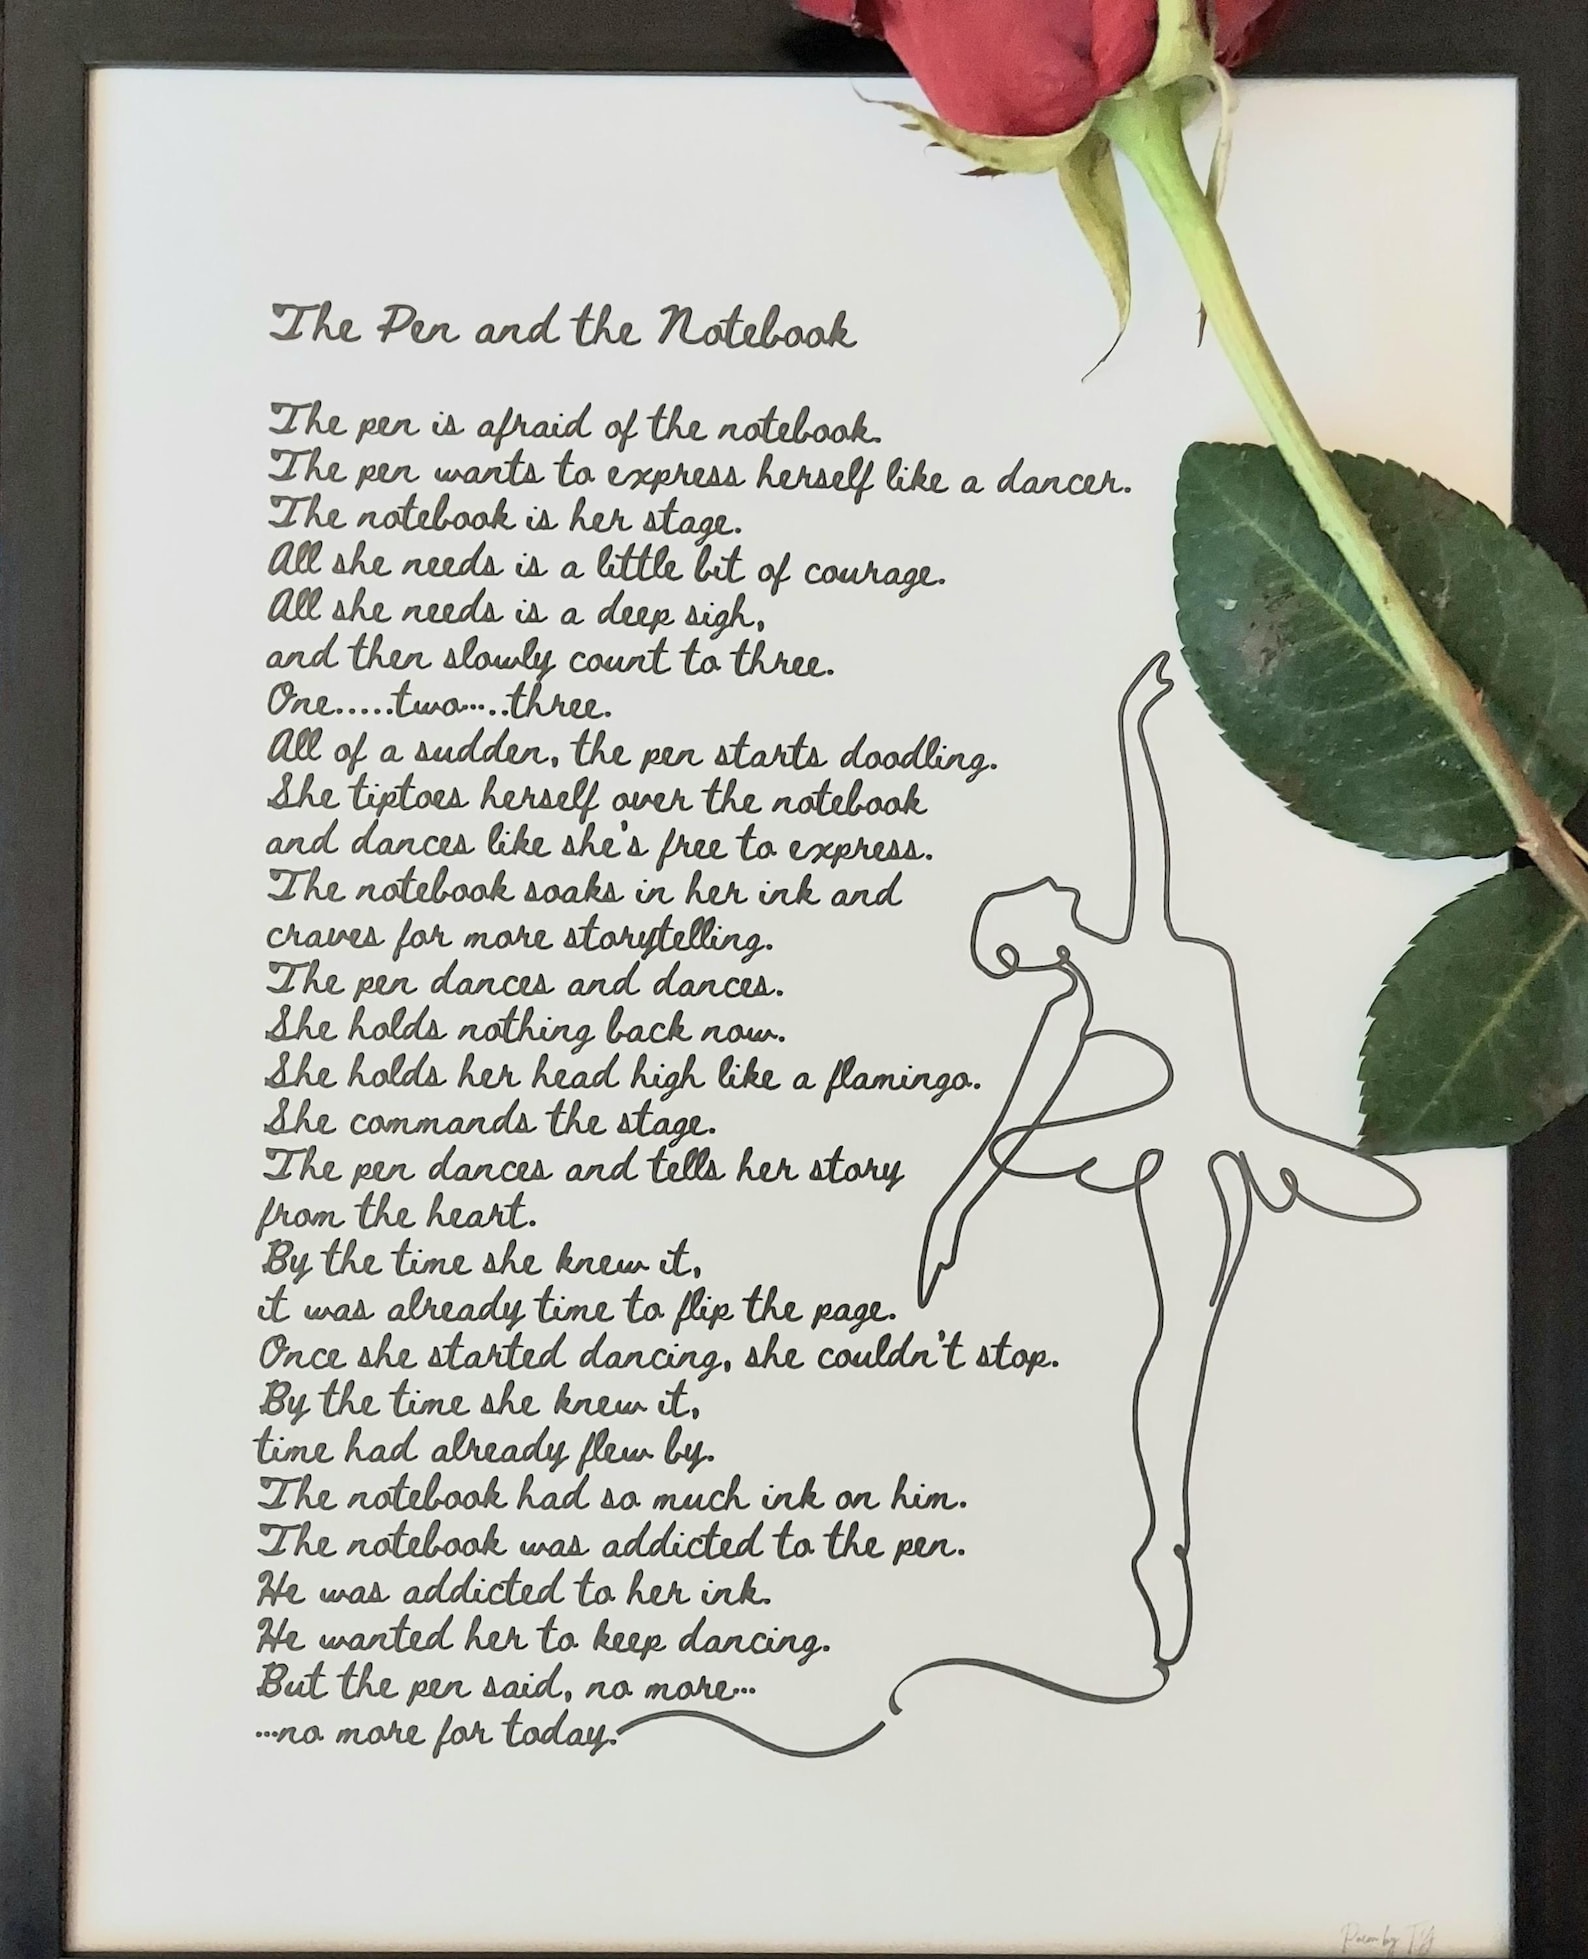 The Pen and the Notebook
The pen is afraid of the notebook.
The pen wants to express herself like a dancer.
The notebook is her stage.
All she needs is a little bit of courage.
All she needs is a deep sigh,
and then slowly count to three.
One.....two.....three.
All of a sudden, the pen starts doodling.
She tiptoes herself over the notebook
and dances like she's free to express.
The notebook soaks in her ink and
craves for more storytelling.
The pen dances and dances.
She holds nothing back now.
She holds her head high like a flamingo.
She commands the stage.
The pen dances and tells her story
from the heart.
By the time she knew it,
it was already time to flip the page.
Once she started dancing, she couldn't stop.
By the time she knew it,
time had already flew by.
The notebook had so much ink on him.
The notebook was addicted to the pen.
He was addicted to her ink.
He wanted her to keep dancing.
But the pen said, no more...
...no more for today.
Poem by TY